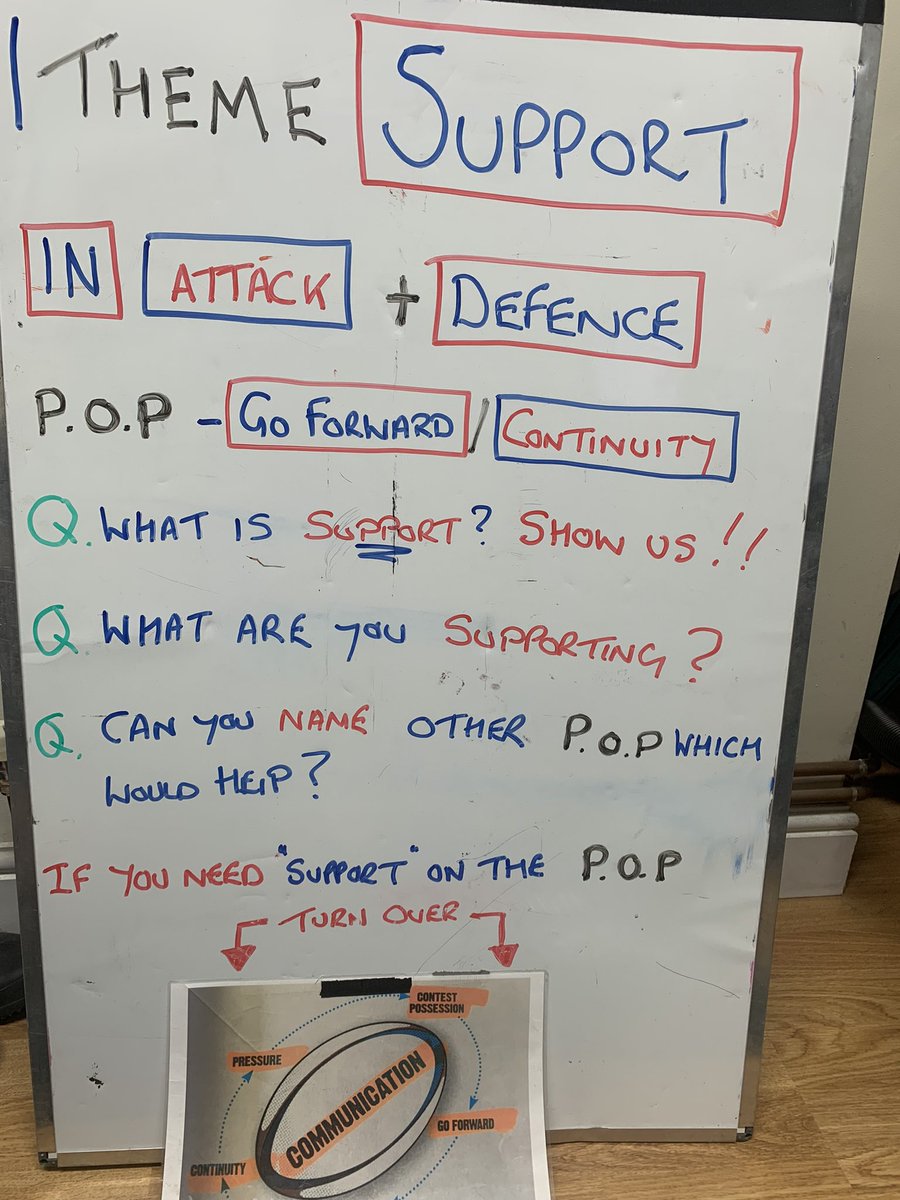 THEME SUPPORT
IN ATTACK + DEFENCE
P.O.P - GO FORWARD / CONTINUITY
Q. WHAT IS SUPPORT? SHOW US!!
Q WHAT ARE YOU SUPPORTING?
Q. CAN YOU NAME OTHER P.O.P WHICH
WOULD HELP?
IF YOU NEED "SUPPORT" ON THE P.O.P
TURN OVER
CONTEST
POSSESSION
PRESSURE
COMMUNICATION
GO FORWARD
CONTINUITY